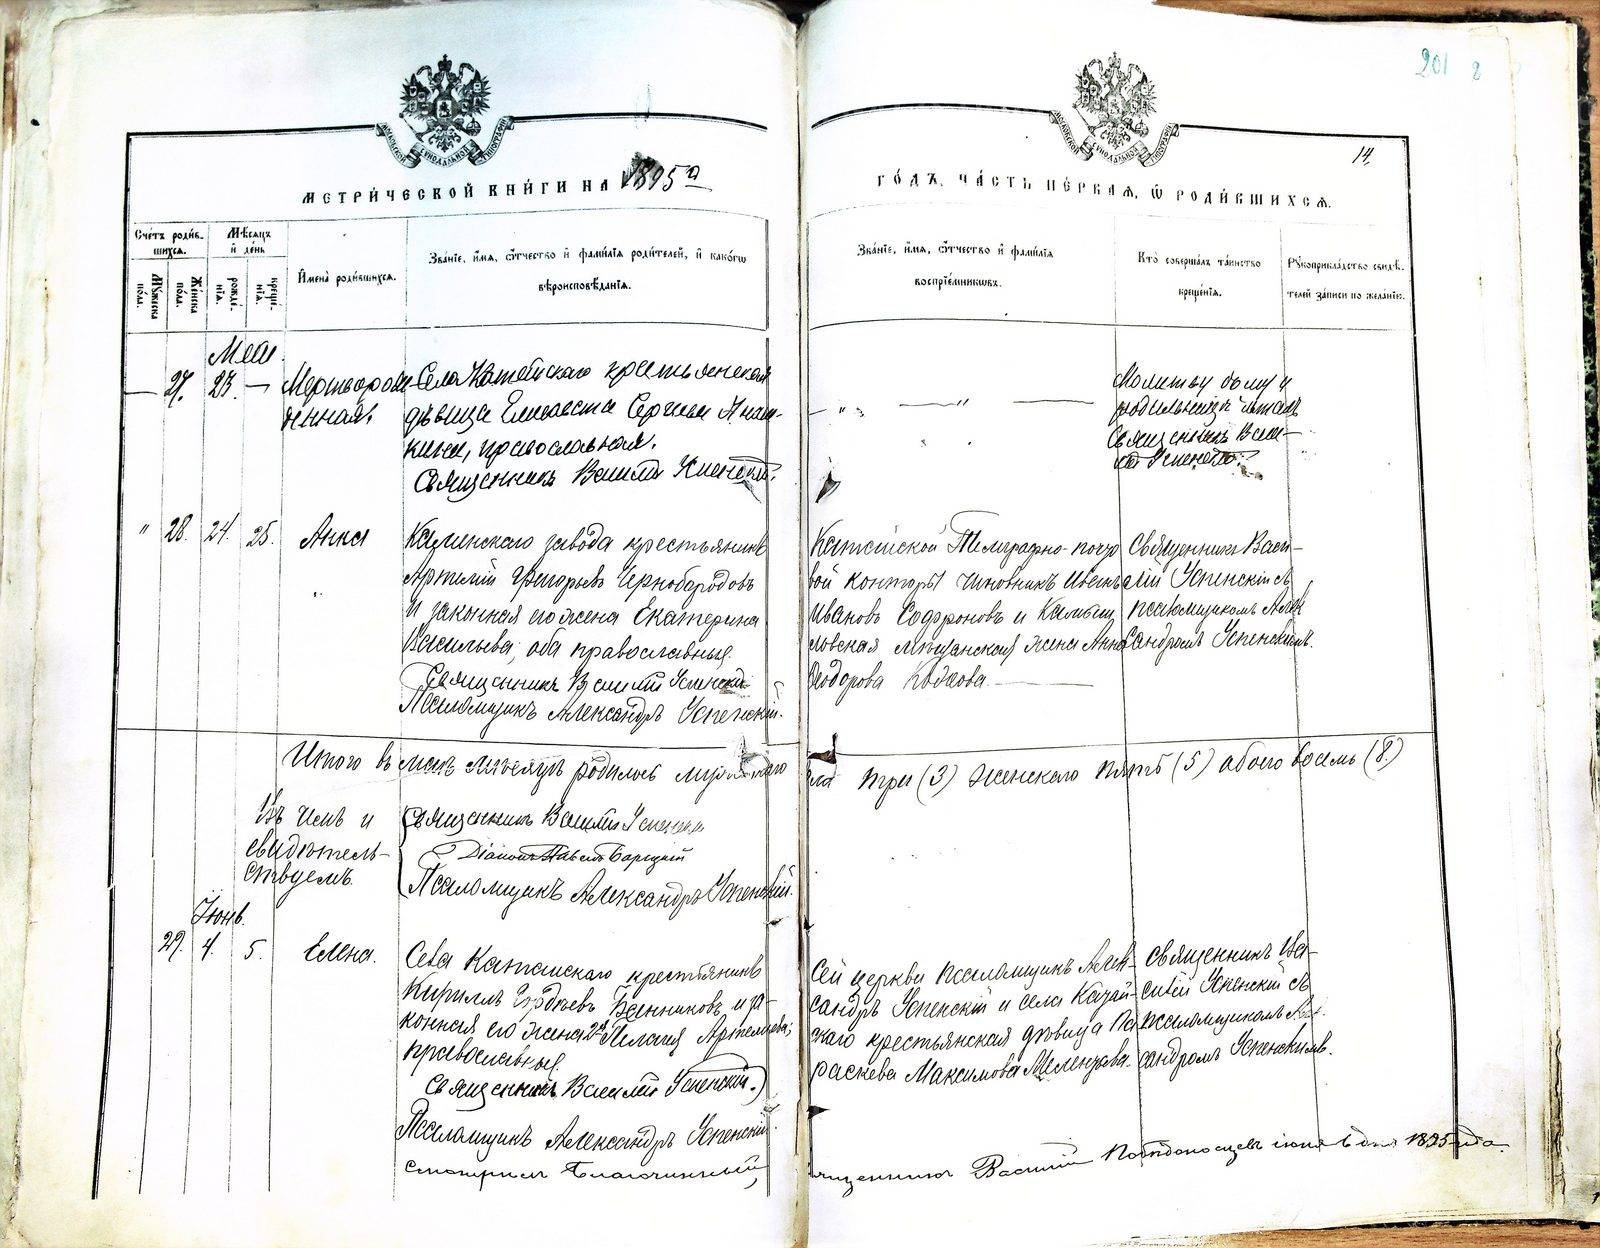 201
14.
МОСКОВСКОЙ СУНОДАЛЬНОЙ ТИПОГРАФІИ
МОСКОВСКОЙ СУНОДАЛЬНОЙ ТИПОГРАФІИ
МЕТРИ́ЧЕСКОЙ КНИ́ГИ НА 1895 й
ГО́ДЪ, ЧА́СТЬ ПЕ́РВАЯ, Ѡ РОДИ́ВШИХСЯ.
Сче́тъ роди́в-
шихся.
Му́жеска по́ла.
Же́нска по́ла.
Мѣ́сяцъ
и де́нь
рожде́-
нія.
креще́-
нія.
Имена̀ роди́вшихся.
Зва́ніе, и́мя, о́тчество и фами́лія роди́телей, и како́гѡ
вѣроисповѣ́данія.
Зва́ніе, и́мя, о́тчество и фами́лія
воспріе́мниковъ.
Кто̀ соверша́лъ та́инство
креще́нія.
Рукоприкла́дство свидѣ́-
телей за́писи по жела́нію.
Май.
— 27. 23. — Мертворож-
денная.
Села Катайскаго крестьянская
дѣвица Елисавета Сергѣева
православная.
Священникъ Василій Успенскій.
Молитву бому и
родильницѣ читалъ
Священникъ Васи-
лій Успенскій.
" 28. 24. 25. Анна
Каменскаго завода крестьянинъ
Артемій Григорьевъ Чернобородовъ
и законная его жена Екатерина
Васильева, оба православные.
Священникъ Василій Успенскій
Псаломщикъ Александръ Успенскій.
Катайской Телеграфно-почто
вой конторы чиновникъ
Ивановъ Софроновъ и Камыш
ловская мѣщанская жена Анна
Ѳеодорова
Священникъ Васи-
лій Успенскій съ
псаломщикомъ Алек
сандромъ Успенскимъ.
Итого въ маѣ мѣсяцѣ родилось мужескаго
пола три (3) женскаго пять (5) обоего восемь (8.)
Въ чемъ и
свидѣтель-
ствуемъ.
Священникъ Василій Успенскій
Діаконъ Павелъ
Псаломщикъ Александръ Успенскій.
Іюнь.
29. 4. 5. Елена.
Села Катайскаго крестьянинъ
Кириллъ Гордѣевъ и за-
конная его жена 2я Пелагія Артемьева;
православные.
Священникъ Василій Успенскій.
Псаломщикъ Александръ Успенскій.
Сей церкви псаломщикъ Алек-
сандръ Успенскій и села Катай-
скаго крестьянская дѣвица Па
раскева Максимова
священникъ Ва-
силій Успенскій съ
псаломщикомъ Алек-
сандромъ Успенскимъ.
Смотрѣлъ Благочинный,
священникъ Василій Побѣдоносцевъ іюня 6 дня 1895 года.